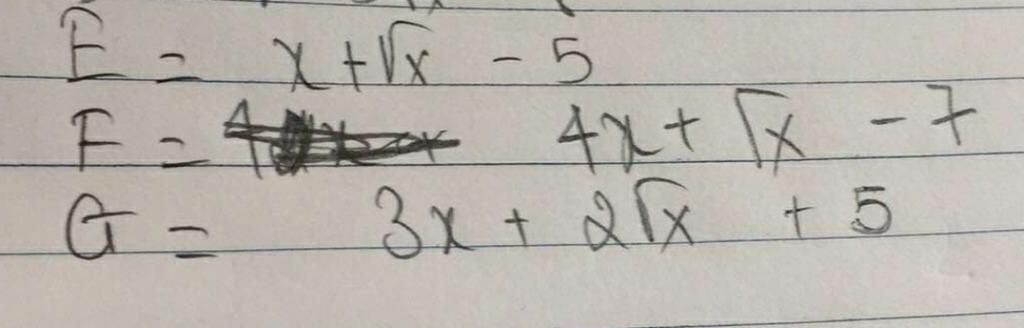 E = x + √x - 5
F = 4x + √x - 7
G = 3x + 2√x + 5